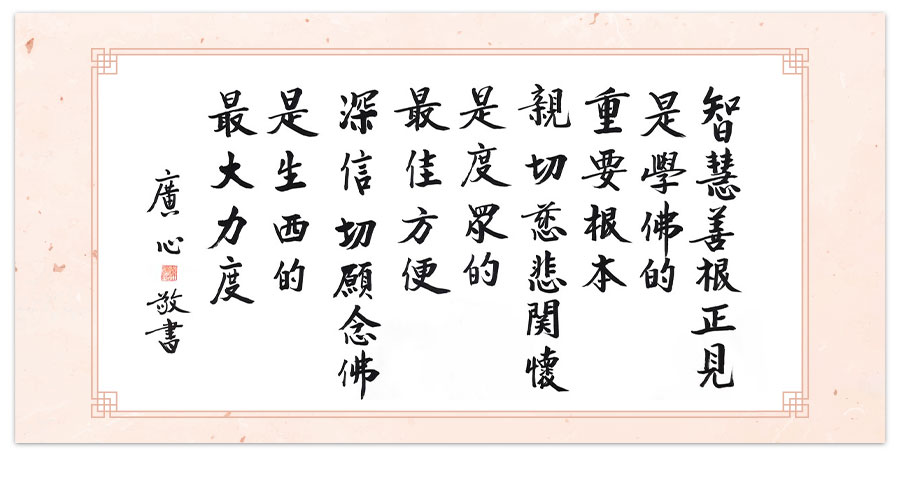 智慧善根正見
是學佛的
重要根本
親切慈悲関懷
是度眾的
最佳方便
深信切願念佛
是生西的
最大力度
廣心敬書